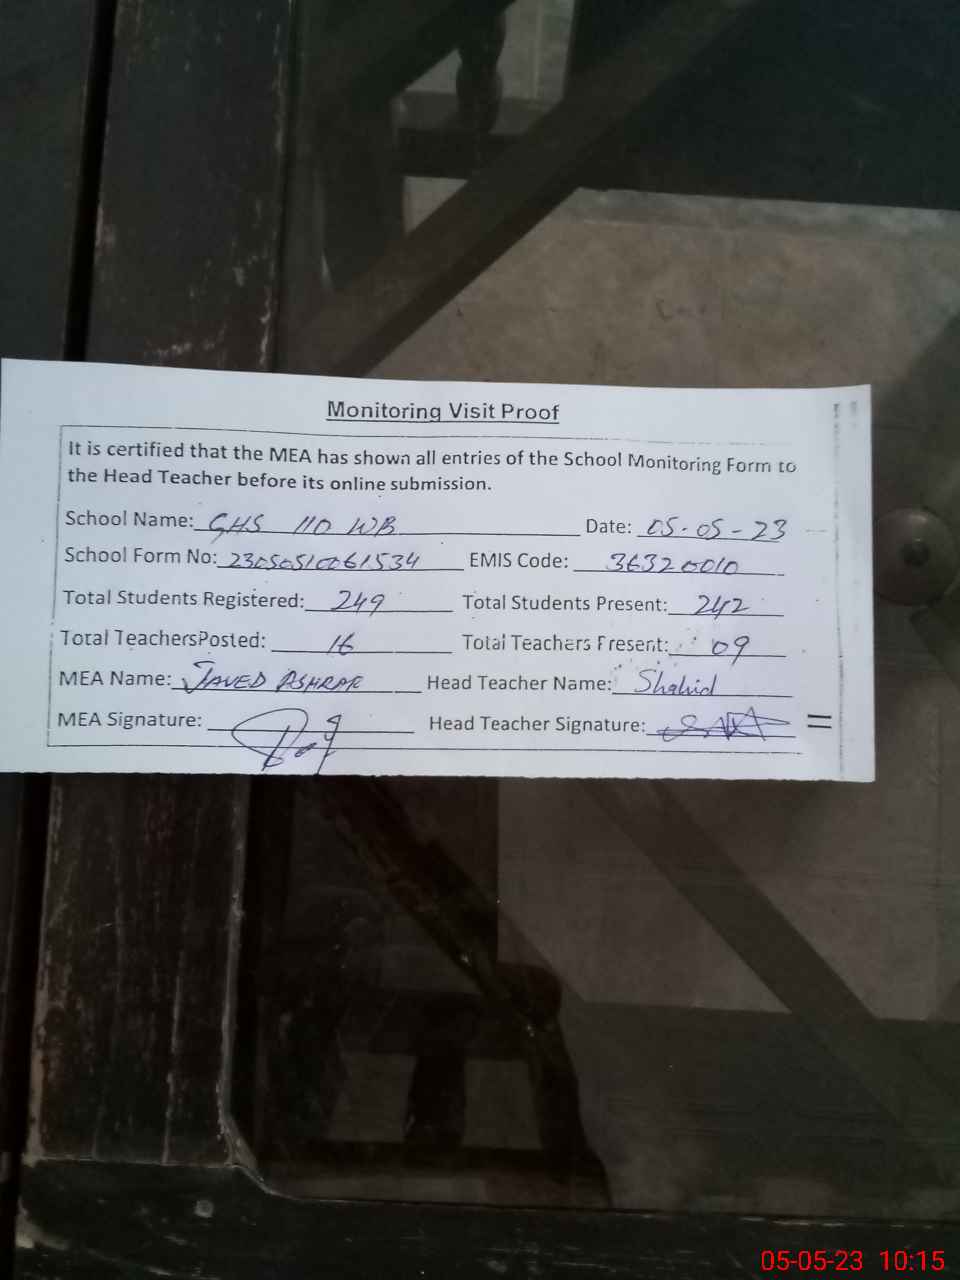 Monitoring Visit Proof
It is certified that the MEA has shown all entries of the School Monitoring Form to
the Head Teacher before its online submission.
School Name: GHS 110 WB Date: 05-05-23
School Form No: 23050510061534 EMIS Code: 36320010
Total Students Registered: 249 Total Students Present: 242
Total TeachersPosted: 16 Total Teachers Present: 09
MEA Name: JAVED ASHRAF Head Teacher Name: Shahid
MEA Signature: Head Teacher Signature:
05-05-23 10:15